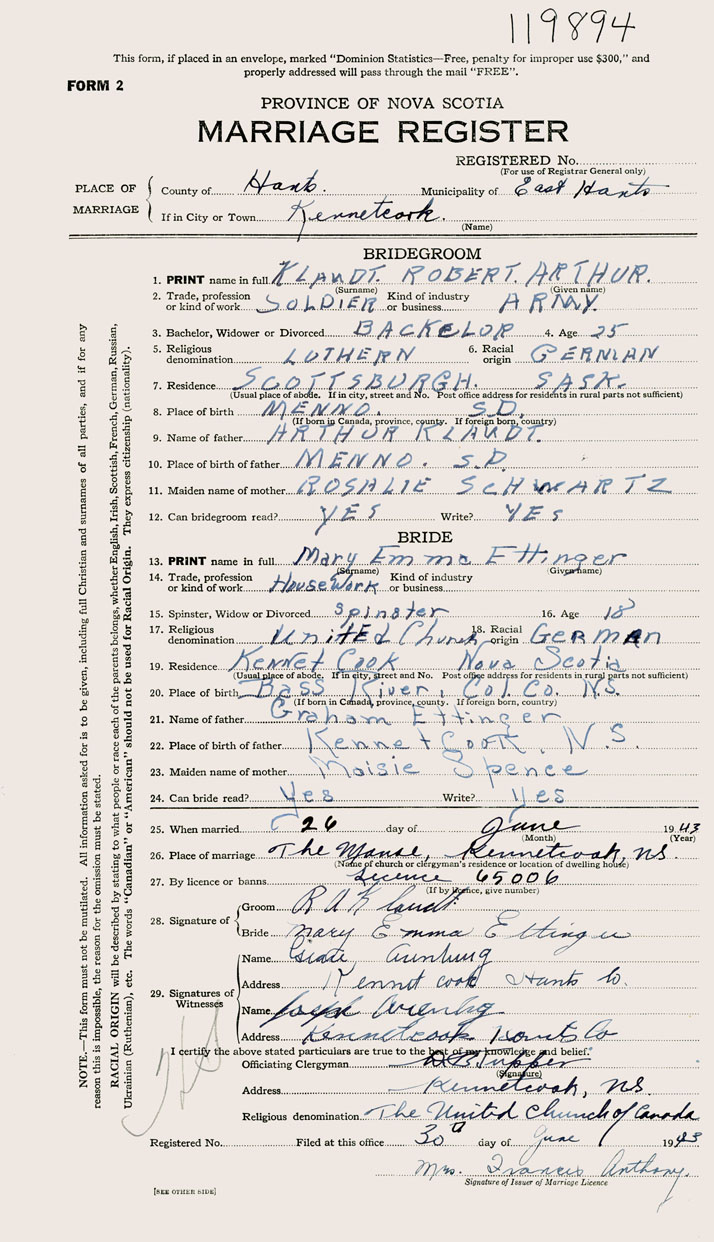 119894
This form, if placed in an envelope, marked "Dominion Statistics—Free, penalty for improper use $300," and
properly addressed will pass through the mail "FREE".
FORM 2
PROVINCE OF NOVA SCOTIA
MARRIAGE REGISTER
REGISTERED No.
(For use of Registrar General only)
PLACE OF MARRIAGE
County of Hants. Municipality of East Hants
If in City or Town Kennetcook.
(Name)
BRIDEGROOM
1. PRINT name in full KLAUDT. ROBERT. ARTHUR.
(Surname) (Given name)
2. Trade, profession or kind of work SOLDIER Kind of industry or business ARMY.
3. Bachelor, Widower or Divorced BACKELOR 4. Age 25
5. Religious denomination LUTHERN 6. Racial origin GERMAN
7. Residence SCOTTSBURGH. SASK.
(Usual place of abode. If in city, street and No. Post office address for residents in rural parts not sufficient)
8. Place of birth MENNO. S.D.
(If born in Canada, province, county. If foreign born, country)
9. Name of father ARTHUR KLAUDT.
10. Place of birth of father MENNO. S.D.
11. Maiden name of mother ROSALIE SCHWARTZ
12. Can bridegroom read? YES Write? YES
BRIDE
13. PRINT name in full Mary Emma Ettinger
(Surname) (Given name)
14. Trade, profession or kind of work HouseWork Kind of industry or business
15. Spinster, Widow or Divorced Spinster 16. Age 18
17. Religious denomination United Church 18. Racial origin German
19. Residence Kennet Cook Nova Scotia
(Usual place of abode. If in city, street and No. Post office address for residents in rural parts not sufficient)
20. Place of birth Bass River, Col. Co. N.S.
(If born in Canada, province, county. If foreign born, country)
21. Name of father Graham Ettinger
22. Place of birth of father Kennet Cook, N.S.
23. Maiden name of mother Moisie Spence
24. Can bride read? Yes Write? Yes
25. When married 26 day of June 1943
(Month) (Year)
26. Place of marriage The Manse, Kennetcook, NS.
(Name of church or clergyman's residence or location of dwelling house)
27. By licence or banns Licence 65006
(If by licence, give number)
28. Signature of
Groom R A Klaudt
Bride Mary Emma Ettinger
29. Signatures of Witnesses
Name
Address Kennet cook Hants Co.
Name Joseph
Address Kennetcook Hants Co
I certify the above stated particulars are true to the best of my knowledge and belief.
Officiating Clergyman Tupper
(Signature)
Address Kennetcook, NS.
Religious denomination The United Church of Canada
Registered No. Filed at this office 30th day of June 1943
Mrs. Francis Anthony.
Signature of Issuer of Marriage Licence
[SEE OTHER SIDE]
NOTE.—This form must not be mutilated. All information asked for is to be given, including full Christian and surnames of all parties, and if for any
reason this is impossible, the reason for the omission must be stated.
RACIAL ORIGIN will be described by stating to what people or race each of the parents belongs, whether English, Irish, Scottish, French, German, Russian,
Ukrainian (Ruthenian), etc. The words "Canadian" or "American" should not be used for Racial Origin. They express citizenship (nationality).